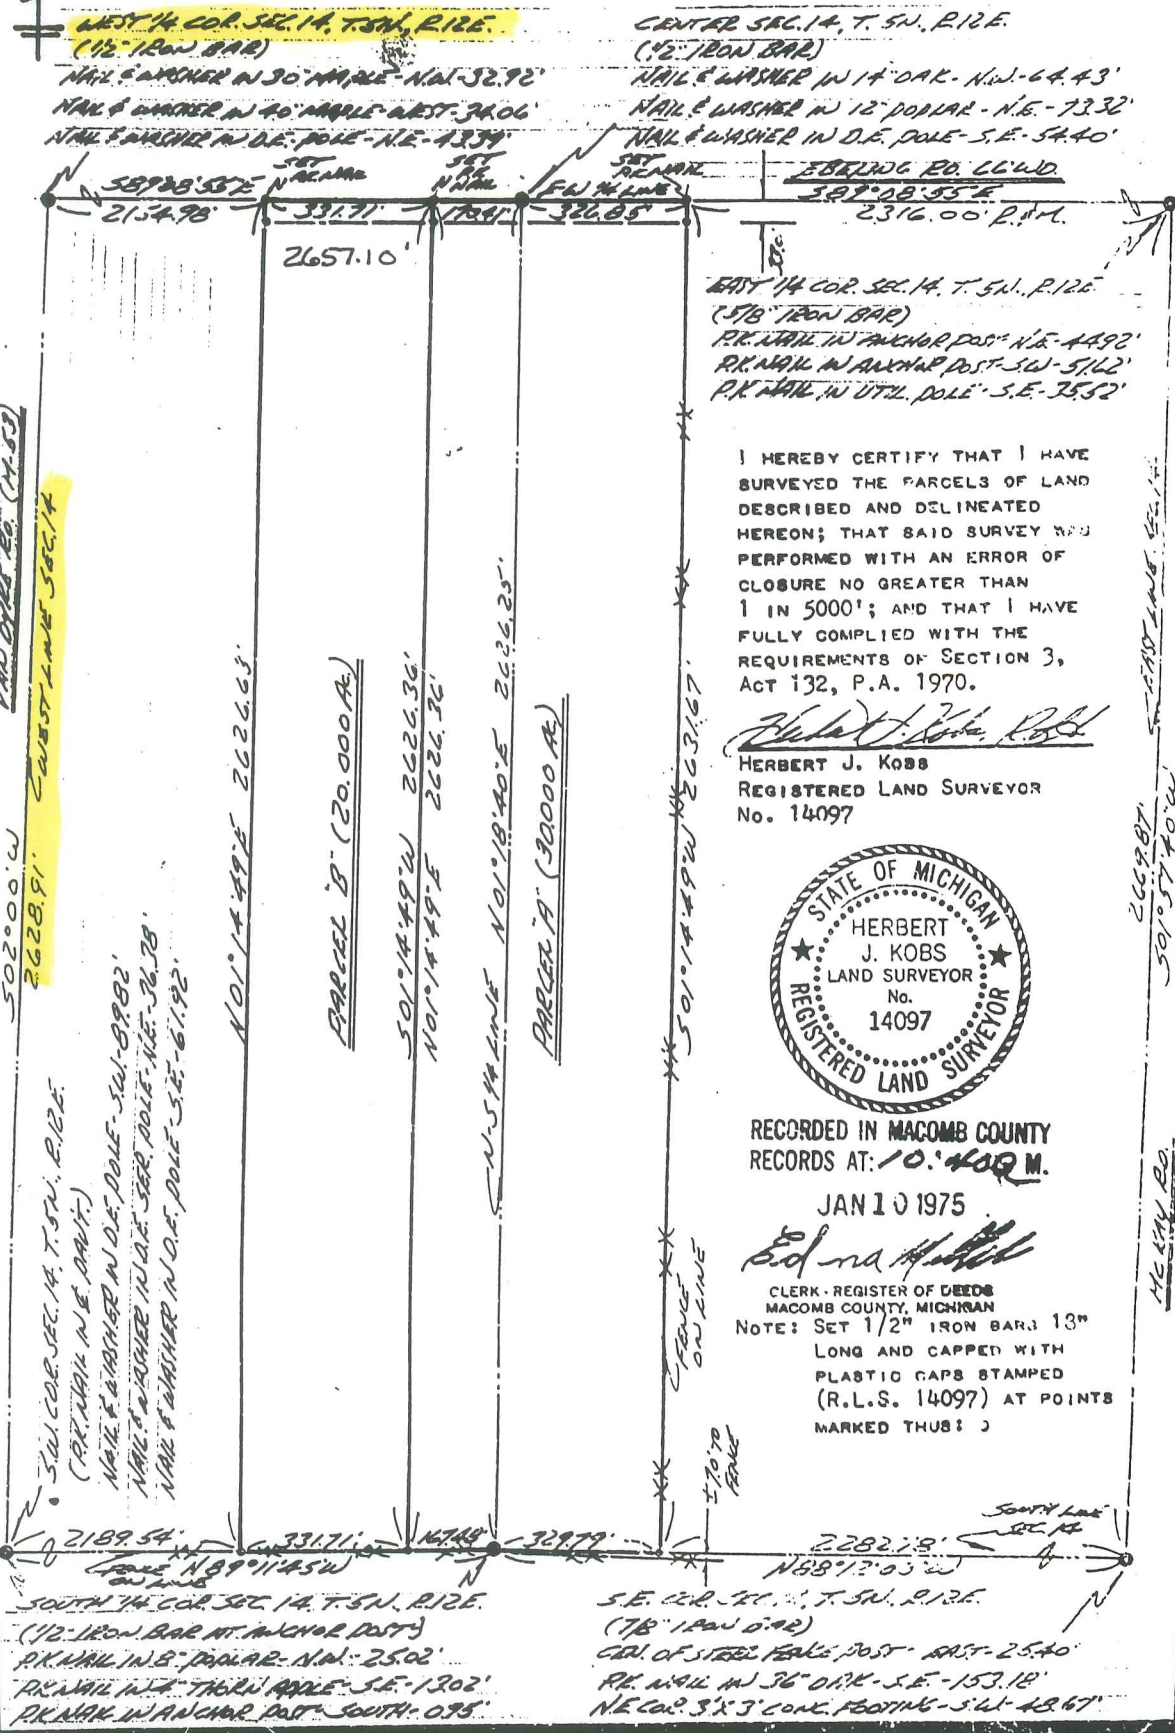 WEST 1/4 COR. SEC. 14, T. 5N., R. 12E.
(1/2" IRON BAR)
NAIL & WASHER IN 30" MAPLE - N.W. - 32.92'
NAIL & WASHER IN 40" MAPLE - WEST - 34.06'
NAIL & WASHER IN D.E. POLE - N.E. - 43.39'
CENTER SEC. 14, T. 5N., R. 12E.
(1/2" IRON BAR)
NAIL & WASHER IN 14" OAK - N.W. - 64.43'
NAIL & WASHER IN 12" POPLAR - N.E. - 73.32'
NAIL & WASHER IN D.E. POLE - S.E. - 54.40'
EBELING RD. 66' WD.
S89°08'55"E
2154.98'
SET P.K. NAIL
331.71'
SET P.K. NAIL
170.41'
SET P.K. NAIL
E-W 1/4 LINE
326.85'
S89°08'55"E
2316.00' R.&M.
2657.10'
33.0'
EAST 1/4 COR. SEC. 14, T. 5N., R. 12E.
(5/8" IRON BAR)
P.K. NAIL IN ANCHOR POST - N.E. - 44.92'
P.K. NAIL IN ANCHOR POST - S.W. - 51.62'
P.K. NAIL IN UTIL. POLE - S.E. - 35.52'
VAN DYKE RD. (M-53)
S02°00'00"W
2628.91'
WEST LINE SEC. 14
N01°14'49"E 2626.63'
PARCEL "B" (20.000 AC.)
S01°14'49"W 2626.36'
N01°14'49"E 2626.36'
N-S 1/4 LINE N01°18'40"E 2626.25'
PARCEL "A" (30.000 AC.)
S01°14'49"W 2631.67'
FENCE ON LINE
EAST LINE SEC. 14
2669.87'
S01°57'40"W
MCKAY RD.
I HEREBY CERTIFY THAT I HAVE
SURVEYED THE PARCELS OF LAND
DESCRIBED AND DELINEATED
HEREON; THAT SAID SURVEY WAS
PERFORMED WITH AN ERROR OF
CLOSURE NO GREATER THAN
1 IN 5000'; AND THAT I HAVE
FULLY COMPLIED WITH THE
REQUIREMENTS OF SECTION 3,
ACT 132, P.A. 1970.
HERBERT J. KOBS
REGISTERED LAND SURVEYOR
No. 14097
STATE OF MICHIGAN
HERBERT
J. KOBS
LAND SURVEYOR
No.
14097
REGISTERED LAND SURVEYOR
RECORDED IN MACOMB COUNTY
RECORDS AT: 10:40 A M.
JAN 10 1975
Edna
CLERK - REGISTER OF DEEDS
MACOMB COUNTY, MICHIGAN
NOTE: SET 1/2" IRON BARS 18"
LONG AND CAPPED WITH
PLASTIC CAPS STAMPED
(R.L.S. 14097) AT POINTS
MARKED THUS:
S.W. COR. SEC. 14, T. 5N., R. 12E.
(P.K. NAIL IN & PAV'T.)
NAIL & WASHER IN D.E. POLE - S.W. - 89.82'
NAIL & WASHER IN D.E. SER. POLE - N.E. - 36.38'
NAIL & WASHER IN D.E. POLE - S.E. - 61.92'
±7.0' TO FENCE
2189.54'
FENCE ON LINE
N89°11'45"W
331.71'
167.48'
329.79'
2282.18'
N88°12'03"W
SOUTH LINE SEC. 14
SOUTH 1/4 COR. SEC. 14, T. 5N., R. 12E.
(1/2" IRON BAR AT ANCHOR POST)
P.K. NAIL IN 8" POPLAR - N.W. - 25.02'
P.K. NAIL IN 4" THORN APPLE - S.E. - 13.02'
P.K. NAIL IN ANCHOR POST - SOUTH - 0.95'
S.E. COR. SEC. , T. 5N., R. 12E.
(7/8" IRON BAR)
CEN. OF STEEL FENCE POST - EAST - 25.40'
P.K. NAIL IN 36" OAK - S.E. - 153.18'
N.E. COR. 3'X3' CONC. FOOTING - S.W. - 48.67'